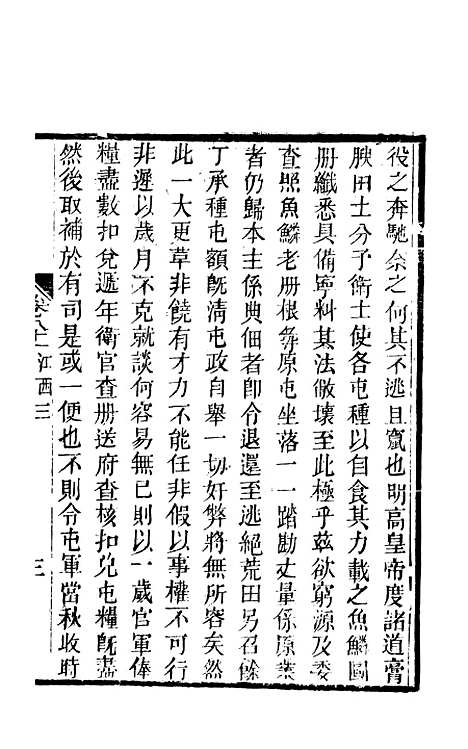 役之奔馳奈之何其不逃且竄也明高皇帝度諸道膏
腴田土分予衛士使各屯種以自食其力載之魚鱗圖
册纖悉具備寧料其法敝壞至此極乎茲欲窮源及委
查照魚鱗老册根尋原屯坐落一一踏勘丈量係原業
者仍歸本主係典佃者卽令退還至逃絕荒田另召餘
丁承種屯額旣清屯政自舉一切奸弊將無所容矣然
此一大更革非饒有才力不能任非假以事權不可行
非遲以歲月不克就談何容易無已則以一歲官軍俸
糧盡數扣兌遞年衛官查册送府查核扣兌屯糧旣盡
然後取補於有司是或一便也不則令屯軍當秋收時
江西三
三